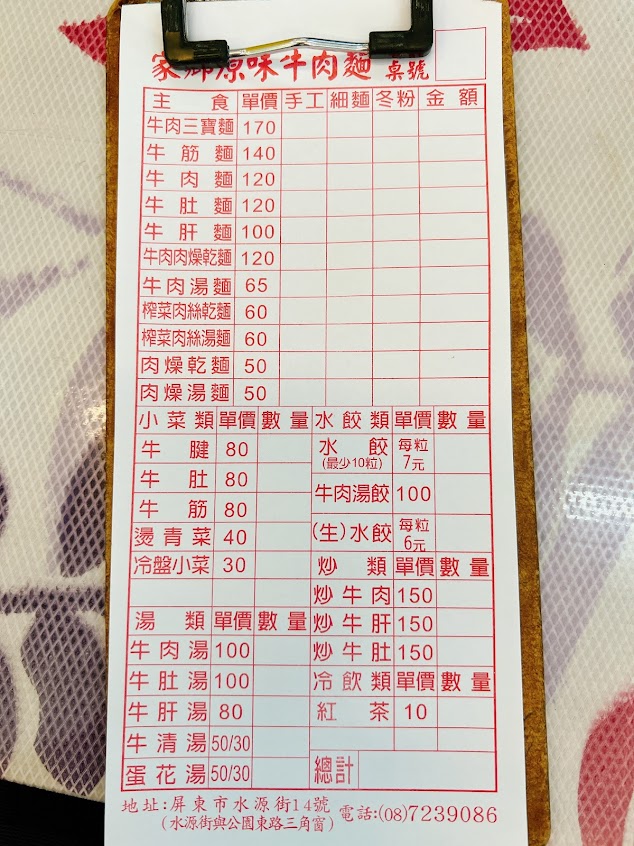 家鄉原味牛肉麵 桌號
主食 單價 手工 細麵 冬粉 金額
牛肉三寶麵 170
牛筋麵 140
牛肉麵 120
牛肚麵 120
牛肝麵 100
牛肉肉燥乾麵 120
牛肉湯麵 65
榨菜肉絲乾麵 60
榨菜肉絲湯麵 60
肉燥乾麵 50
肉燥湯麵 50
小菜類 單價 數量
牛腱 80
牛肚 80
牛筋 80
燙青菜 40
冷盤小菜 30
湯類 單價 數量
牛肉湯 100
牛肚湯 100
牛肝湯 80
牛清湯 50/30
蛋花湯 50/30
水餃類 單價 數量
水餃 每粒
(最少10粒) 7元
牛肉湯餃 100
(生)水餃 每粒
6元
炒類 單價 數量
炒牛肉 150
炒牛肝 150
炒牛肚 150
冷飲類 單價 數量
紅茶 10
總計
地址:屏東市水源街14號 電話:(08)7239086
(水源街與公園東路三角窗)